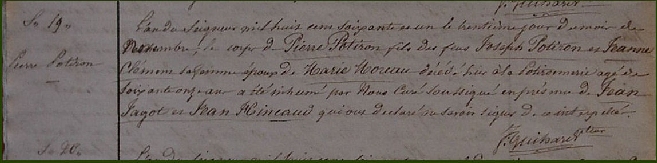 F. Guihard
Se 19e
L'an du Seigneur mil huit cent soixante et un le trentième jour du mois de
Novembre, le corps de Pierre Potiron fils des feus Joseph Potiron et Jeanne
Pierre Potiron
époux de Marie Moreau décédé hier à la Potironnerie agé de
soixante onze ans a été inhumé par Nous Curé Soussigné en présence de Jean
Jagot et Jean Hincaud qui ont déclaré ne savoir signer de ce interpellé
F. Guihard
Se 20e